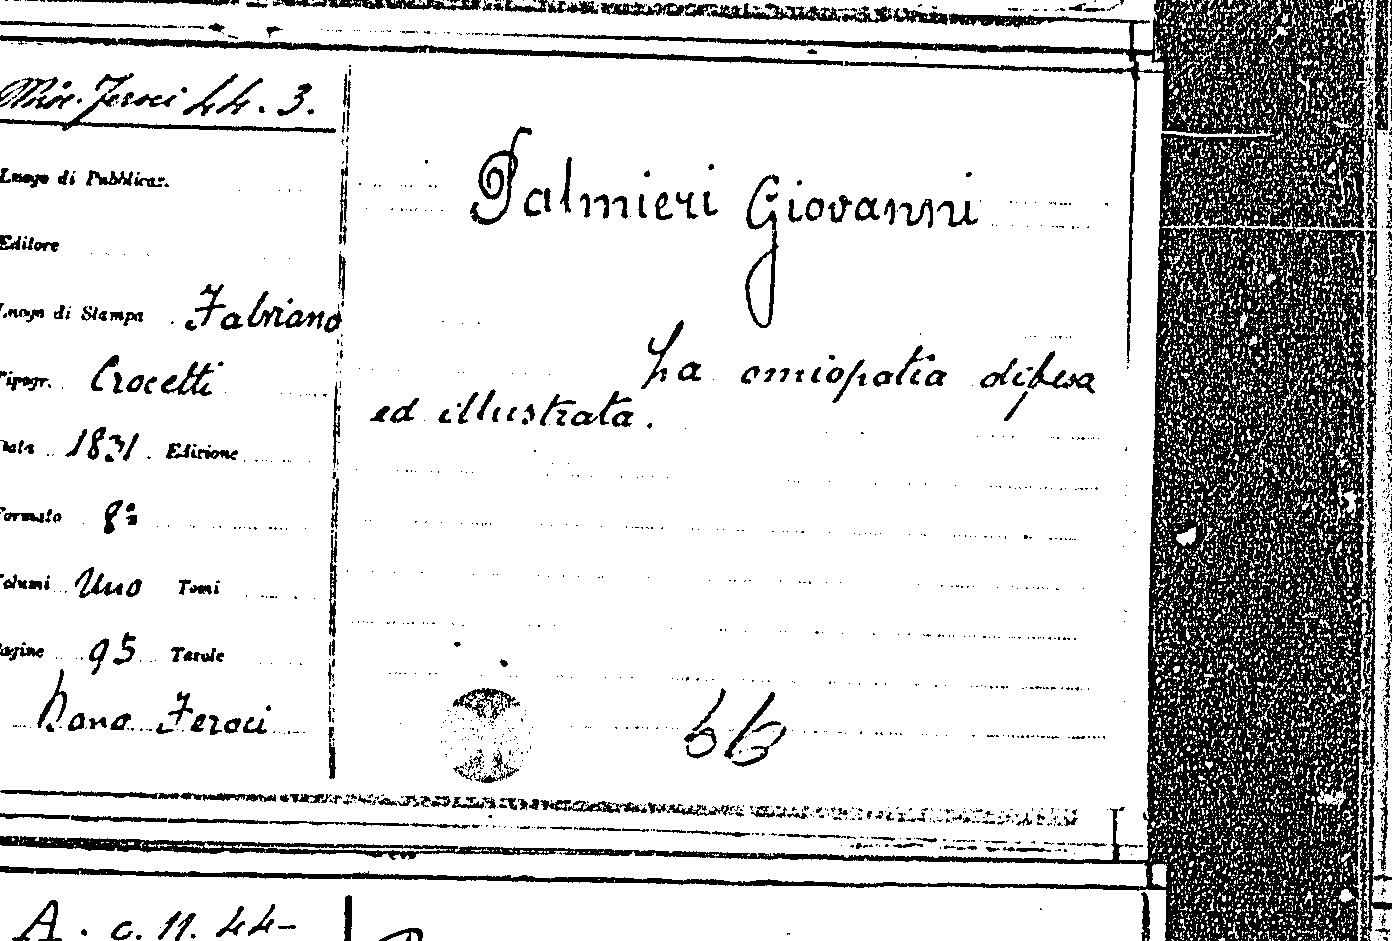 Misc. Feroci 44. 3.
Luogo di Pubblicaz.
Editore
Luogo di Stampa Fabriano
Tipogr. Crocetti
Data 1831. Edizione
Formato 8º
Volumi Uno Tomi
Pagine 95 Tavole
Dono Feroci
Palmieri Giovanni
La omiopatia difesa
ed illustrata.
66
A. c. 11. 44-